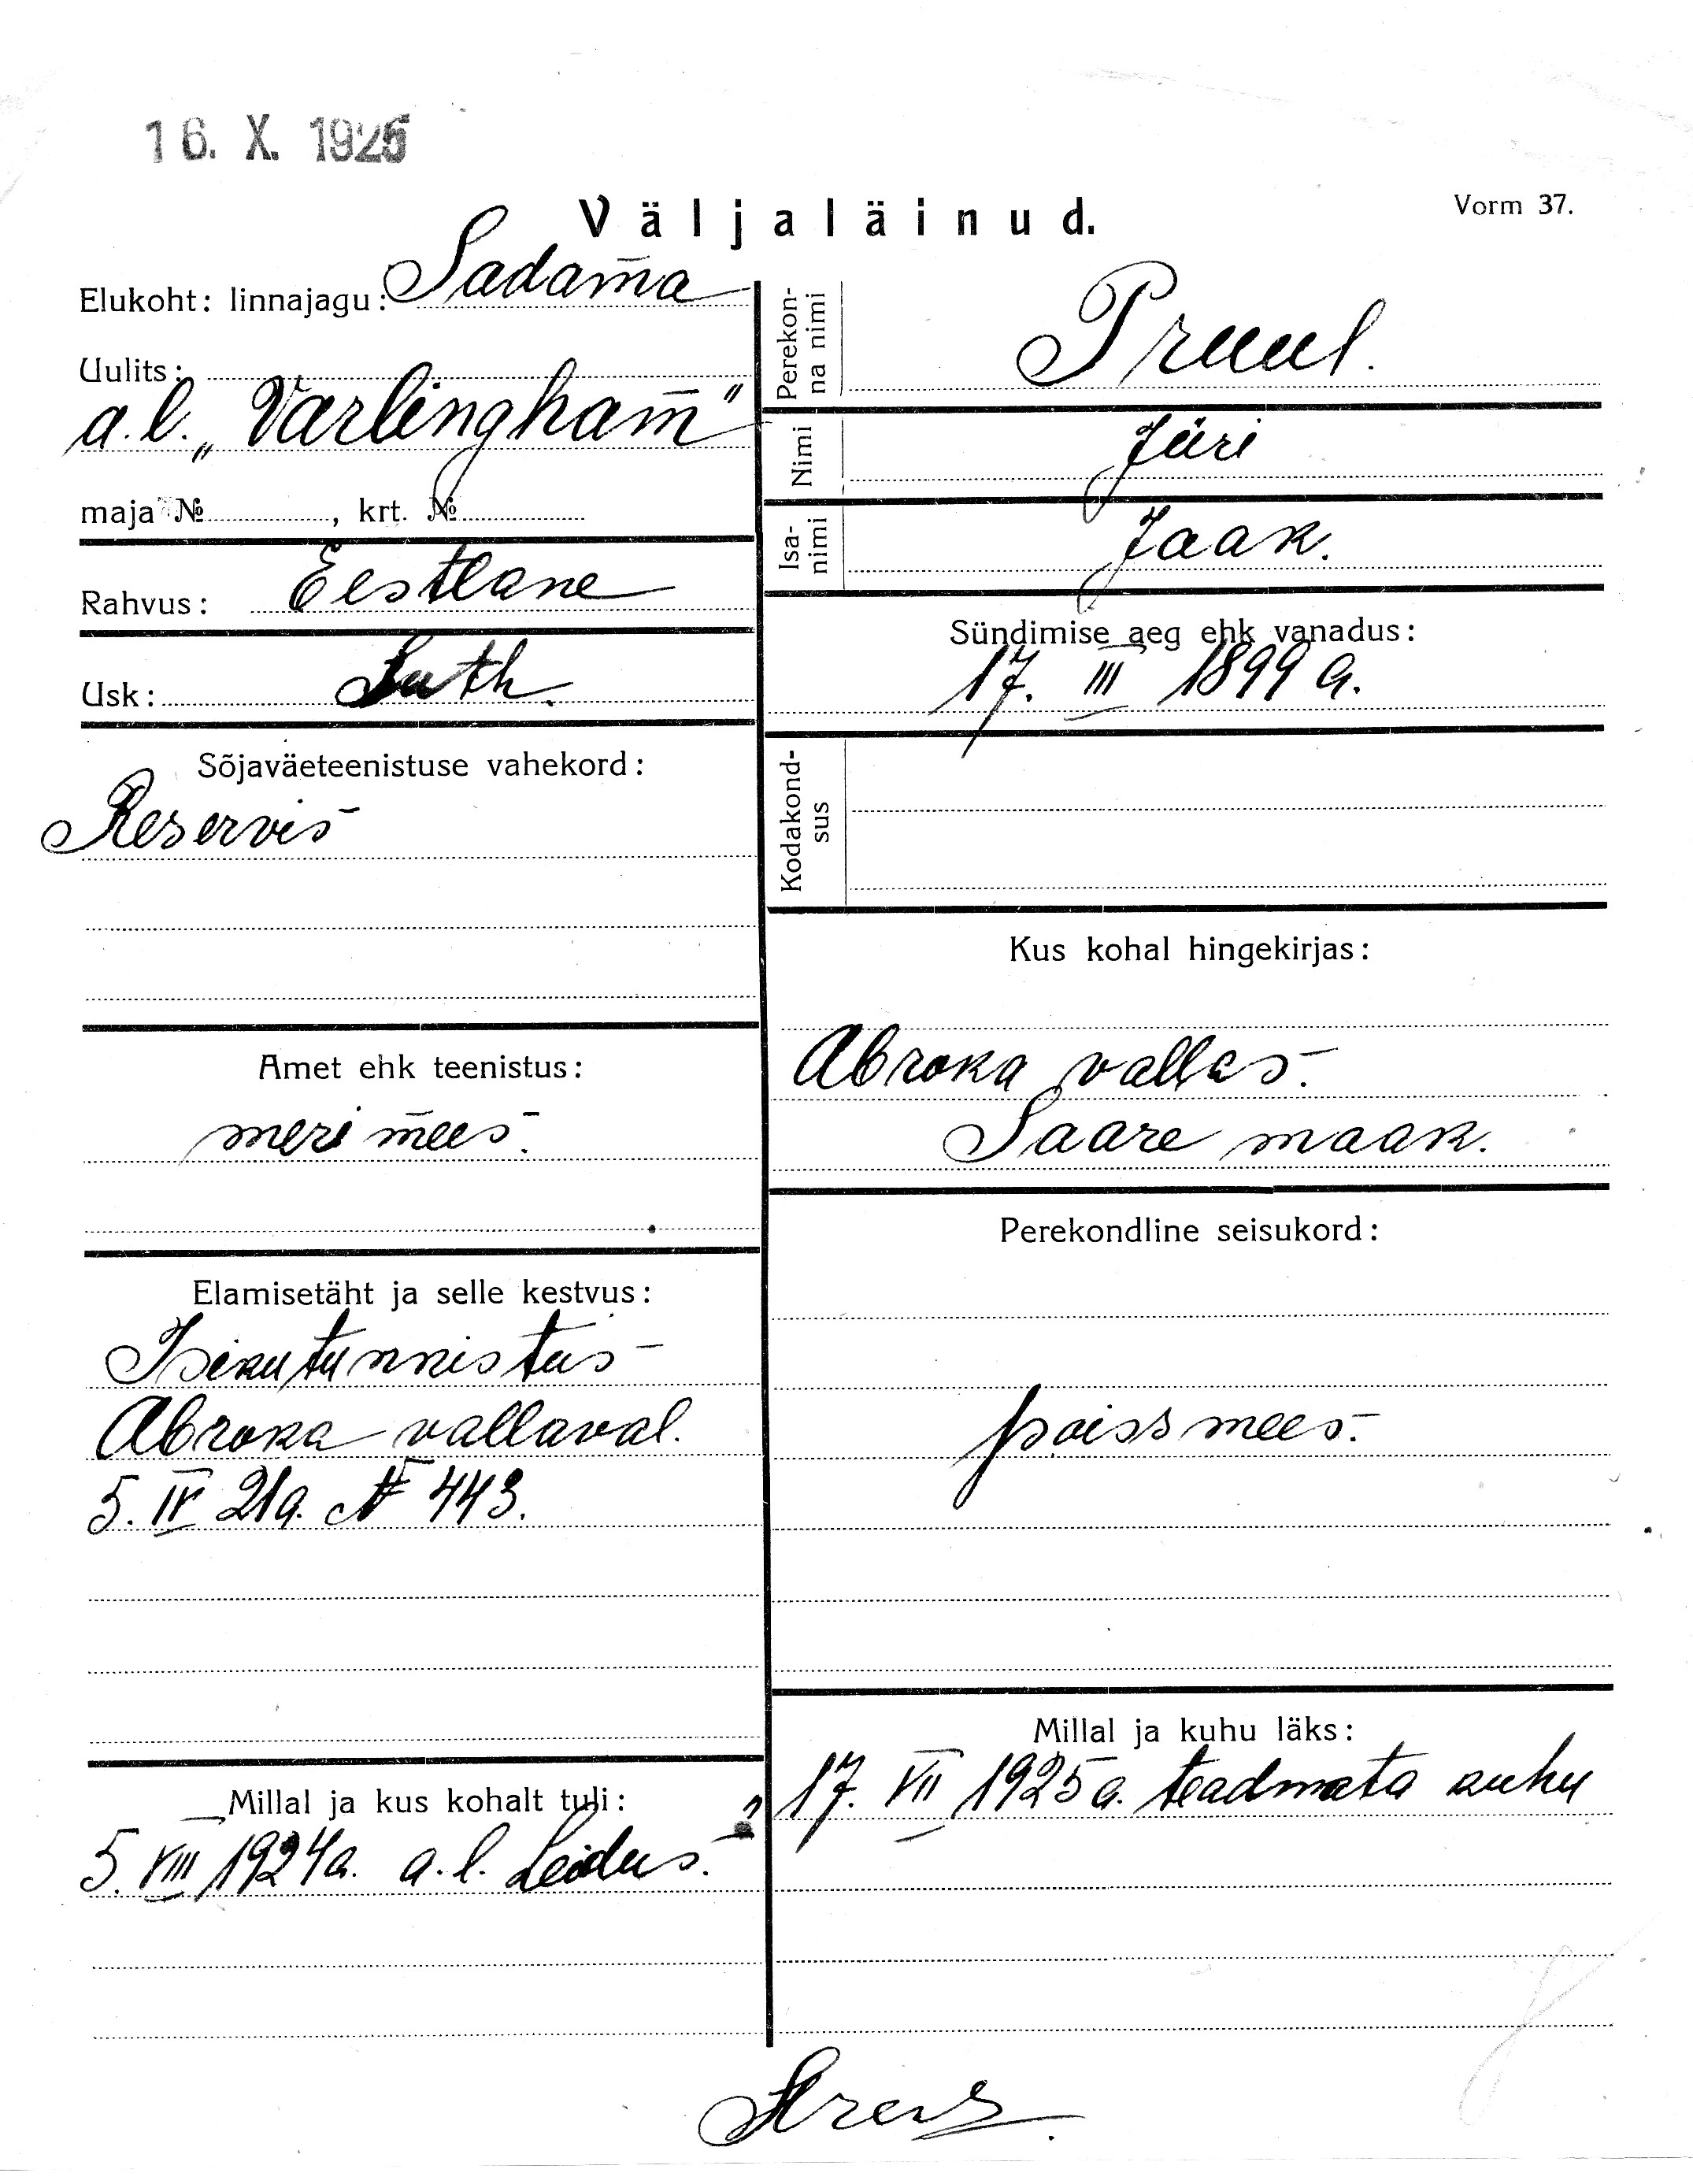 16. X. 1925
Väljaläinud.
Vorm 37.
Elukoht: linnajagu: Sadama
Uulits:
a.l. „Varlingham"
maja № , krt. №
Rahvus: Eestlane
Usk: Luth.
Sõjaväeteenistuse vahekord:
Reservis
Amet ehk teenistus:
meri mees.
Elamisetäht ja selle kestvus:
Isikutunnistus
Abroka vallaval.
5. IV 21a. № 443.
Millal ja kus kohalt tuli:
5. VIII 1924a. a.l. Leidus."
Perekon-
na nimi
Pruul.
Nimi
Jüri
Isa-
nimi
Jaak.
Sündimise aeg ehk vanadus:
17. III 1899 a.
Kodakond-
sus
Kus kohal hingekirjas:
Abroka vallas.
Saare maak.
Perekondline seisukord:
poiss mees.
Millal ja kuhu läks:
17. VII 1925 a. teadmata kuhu